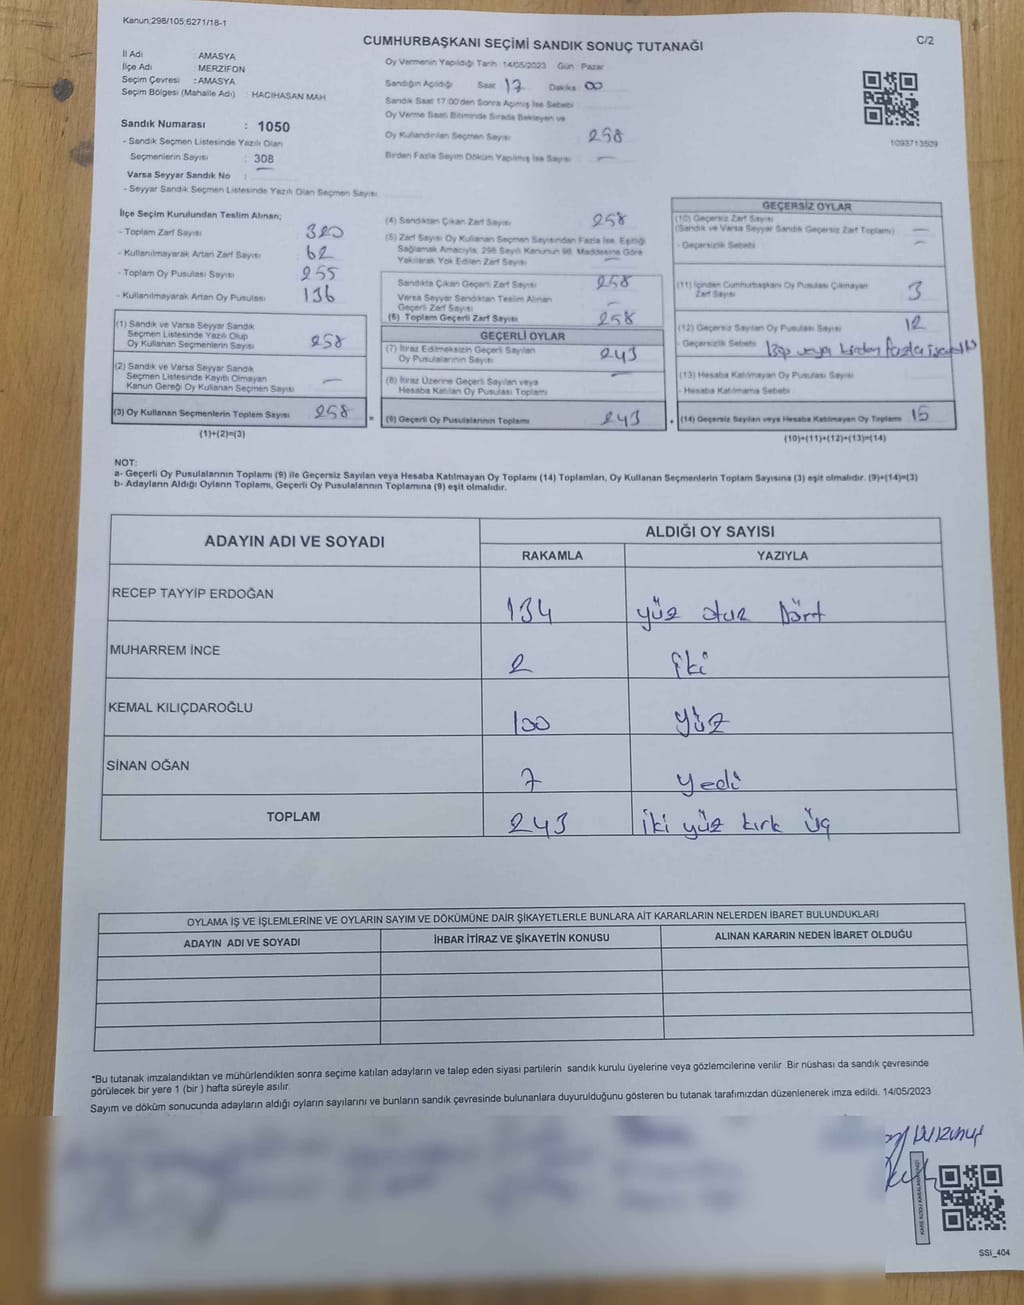 Kanun:298/105;6271/18-1
C/2
CUMHURBAŞKANI SEÇİMİ SANDIK SONUÇ TUTANAĞI
İl Adı : AMASYA
İlçe Adı : MERZİFON
Seçim Çevresi : AMASYA
Seçim Bölgesi (Mahalle Adı) : HACIHASAN MAH
Sandık Numarası : 1050
- Sandık Seçmen Listesinde Yazılı Olan
Seçmenlerin Sayısı : 308
Varsa Seyyar Sandık No :
- Seyyar Sandık Seçmen Listesinde Yazılı Olan Seçmen Sayısı
Oy Vermenin Yapıldığı Tarih : 14/05/2023 Gün : Pazar
Sandığın Açıldığı Saat 17 Dakika 00
Sandık Saat 17.00'den Sonra Açılmış İse Sebebi
Oy Verme Saati Bitiminde Sırada Bekleyen ve
Oy Kullandırılan Seçmen Sayısı 258
Birden Fazla Sayım Döküm Yapılmış İse Sayısı —
1093713509
İlçe Seçim Kurulundan Teslim Alınan;
- Toplam Zarf Sayısı 320
- Kullanılmayarak Artan Zarf Sayısı 62
- Toplam Oy Pusulası Sayısı
- Kullanılmayarak Artan Oy Pusulası 136
(1) Sandık ve Varsa Seyyar Sandık
Seçmen Listesinde Yazılı Olup
Oy Kullanan Seçmenlerin Sayısı 258
(2) Sandık ve Varsa Seyyar Sandık
Seçmen Listesinde Kayıtlı Olmayan
Kanun Gereği Oy Kullanan Seçmen Sayısı —
(3) Oy Kullanan Seçmenlerin Toplam Sayısı 258 =
(1)+(2)=(3)
(4) Sandıktan Çıkan Zarf Sayısı 258
(5) Zarf Sayısı Oy Kullanan Seçmen Sayısından Fazla İse, Eşitliği
Sağlamak Amacıyla, 298 Sayılı Kanunun 98. Maddesine Göre
Yakılarak Yok Edilen Zarf Sayısı —
Sandıkta Çıkan Geçerli Zarf Sayısı 258
Varsa Seyyar Sandıktan Teslim Alınan
Geçerli Zarf Sayısı —
(6) Toplam Geçerli Zarf Sayısı 258
GEÇERLİ OYLAR
(7) İtiraz Edilmeksizin Geçerli Sayılan
Oy Pusulalarının Sayısı 243
(8) İtiraz Üzerine Geçerli Sayılan veya
Hesaba Katılan Oy Pusulası Toplamı —
(9) Geçerli Oy Pusulalarının Toplamı 243 +
GEÇERSİZ OYLAR
(10) Geçersiz Zarf Sayısı
(Sandık ve Varsa Seyyar Sandık Geçersiz Zarf Toplamı) —
- Geçersizlik Sebebi —
(11) İçinden Cumhurbaşkanı Oy Pusulası Çıkmayan
Zarf Sayısı 3
(12) Geçersiz Sayılan Oy Pusulası Sayısı 12
- Geçersizlik Sebebi veya birden fazla
(13) Hesaba Katılmayan Oy Pusulası Sayısı
- Hesaba Katılmama Sebebi
(14) Geçersiz Sayılan veya Hesaba Katılmayan Oy Toplamı 15
(10)+(11)+(12)+(13)=(14)
NOT:
a- Geçerli Oy Pusulalarının Toplamı (9) ile Geçersiz Sayılan veya Hesaba Katılmayan Oy Toplamı (14) Toplamları, Oy Kullanan Seçmenlerin Toplam Sayısına (3) eşit olmalıdır. (9)+(14)=(3)
b- Adayların Aldığı Oyların Toplamı, Geçerli Oy Pusulalarının Toplamına (9) eşit olmalıdır.
ADAYIN ADI VE SOYADI ALDIĞI OY SAYISI
RAKAMLA YAZIYLA
RECEP TAYYİP ERDOĞAN 134 yüz otuz Dört
MUHARREM İNCE 2 iki
KEMAL KILIÇDAROĞLU 100 yüz
SİNAN OĞAN 7 yedi
TOPLAM 243 iki yüz kırk üç
OYLAMA İŞ VE İŞLEMLERİNE VE OYLARIN SAYIM VE DÖKÜMÜNE DAİR ŞİKAYETLERLE BUNLARA AİT KARARLARIN NELERDEN İBARET BULUNDUKLARI
ADAYIN ADI VE SOYADI İHBAR İTİRAZ VE ŞİKAYETİN KONUSU ALINAN KARARIN NEDEN İBARET OLDUĞU
*Bu tutanak imzalandıktan ve mühürlendikten sonra seçime katılan adayların ve talep eden siyasi partilerin sandık kurulu üyelerine veya gözlemcilerine verilir. Bir nüshası da sandık çevresinde
görülecek bir yere 1 (bir ) hafta süreyle asılır.
Sayım ve döküm sonucunda adayların aldığı oyların sayılarını ve bunların sandık çevresinde bulunanlara duyurulduğunu gösteren bu tutanak tarafımızdan düzenlenerek imza edildi. 14/05/2023
SSI_404